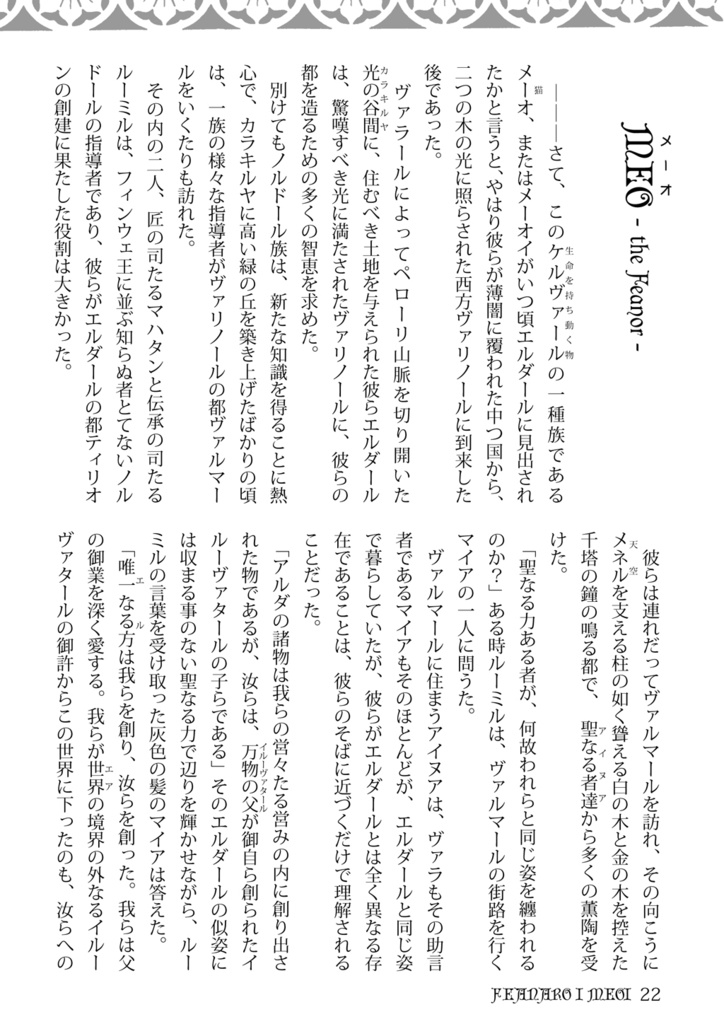 メーオ
MEO - the Feanor -
―――さて、このケルヴァールの一種族である
生命を持ち動く物
メーオ、またはメーオイがいつ頃エルダールに見出され
猫
たかと言うと、やはり彼らが薄闇に覆われた中つ国から、
二つの木の光に照らされた西方ヴァリノールに到来した
後であった。
ヴァラールによってペローリ山脈を切り開いた
光の谷間に、住むべき土地を与えられた彼らエルダール
カラキルヤ
は、驚嘆すべき光に満たされたヴァリノールに、彼らの
都を造るための多くの智恵を求めた。
別けてもノルドール族は、新たな知識を得ることに熱
心で、カラキルヤに高い緑の丘を築き上げたばかりの頃
は、一族の様々な指導者がヴァリノールの都ヴァルマー
ルをいくたりも訪れた。
その内の二人、匠の司たるマハタンと伝承の司たる
ルーミルは、フィンウェ王に並ぶ知らぬ者とてないノル
ドールの指導者であり、彼らがエルダールの都ティリオ
ンの創建に果たした役割は大きかった。
彼らは連れだってヴァルマールを訪れ、その向こうに
メネルを支える柱の如く聳える白の木と金の木を控えた
天空
千塔の鐘の鳴る都で、聖なる者達から多くの薫陶を受
アイヌア
けた。
「聖なる力ある者が、何故われらと同じ姿を纏われる
のか？」ある時ルーミルは、ヴァルマールの街路を行く
マイアの一人に問うた。
ヴァルマールに住まうアイヌアは、ヴァラもその助言
者であるマイアもそのほとんどが、エルダールと同じ姿
で暮らしていたが、彼らがエルダールとは全く異なる存
在であることは、彼らのそばに近づくだけで理解される
ことだった。
「アルダの諸物は我らの営々たる営みの内に創り出さ
れた物であるが、汝らは、万物の父が御自ら創られたイ
イルーヴァタール
ルーヴァタールの子らである」そのエルダールの似姿に
は収まる事のない聖なる力で辺りを輝かせながら、ルー
ミルの言葉を受け取った灰色の髪のマイアは答えた。
「唯一なる方は我らを創り、汝らを創った。我らは父
エル
の御業を深く愛する。我らが世界の境界の外なるイルー
エア
ヴァタールの御許からこの世界に下ったのも、汝らへの
FEANARO I MEOI 22